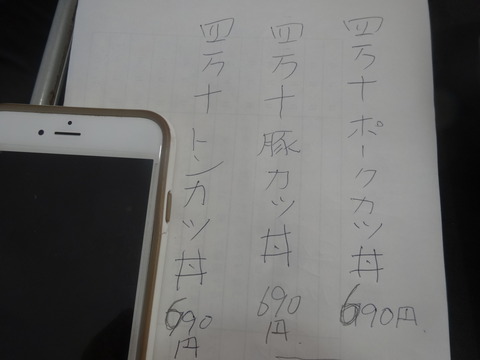 四万十ポークカツ丼
690円.
四万十豚カツ丼
690
円.
四万十トンカツ丼
690
円